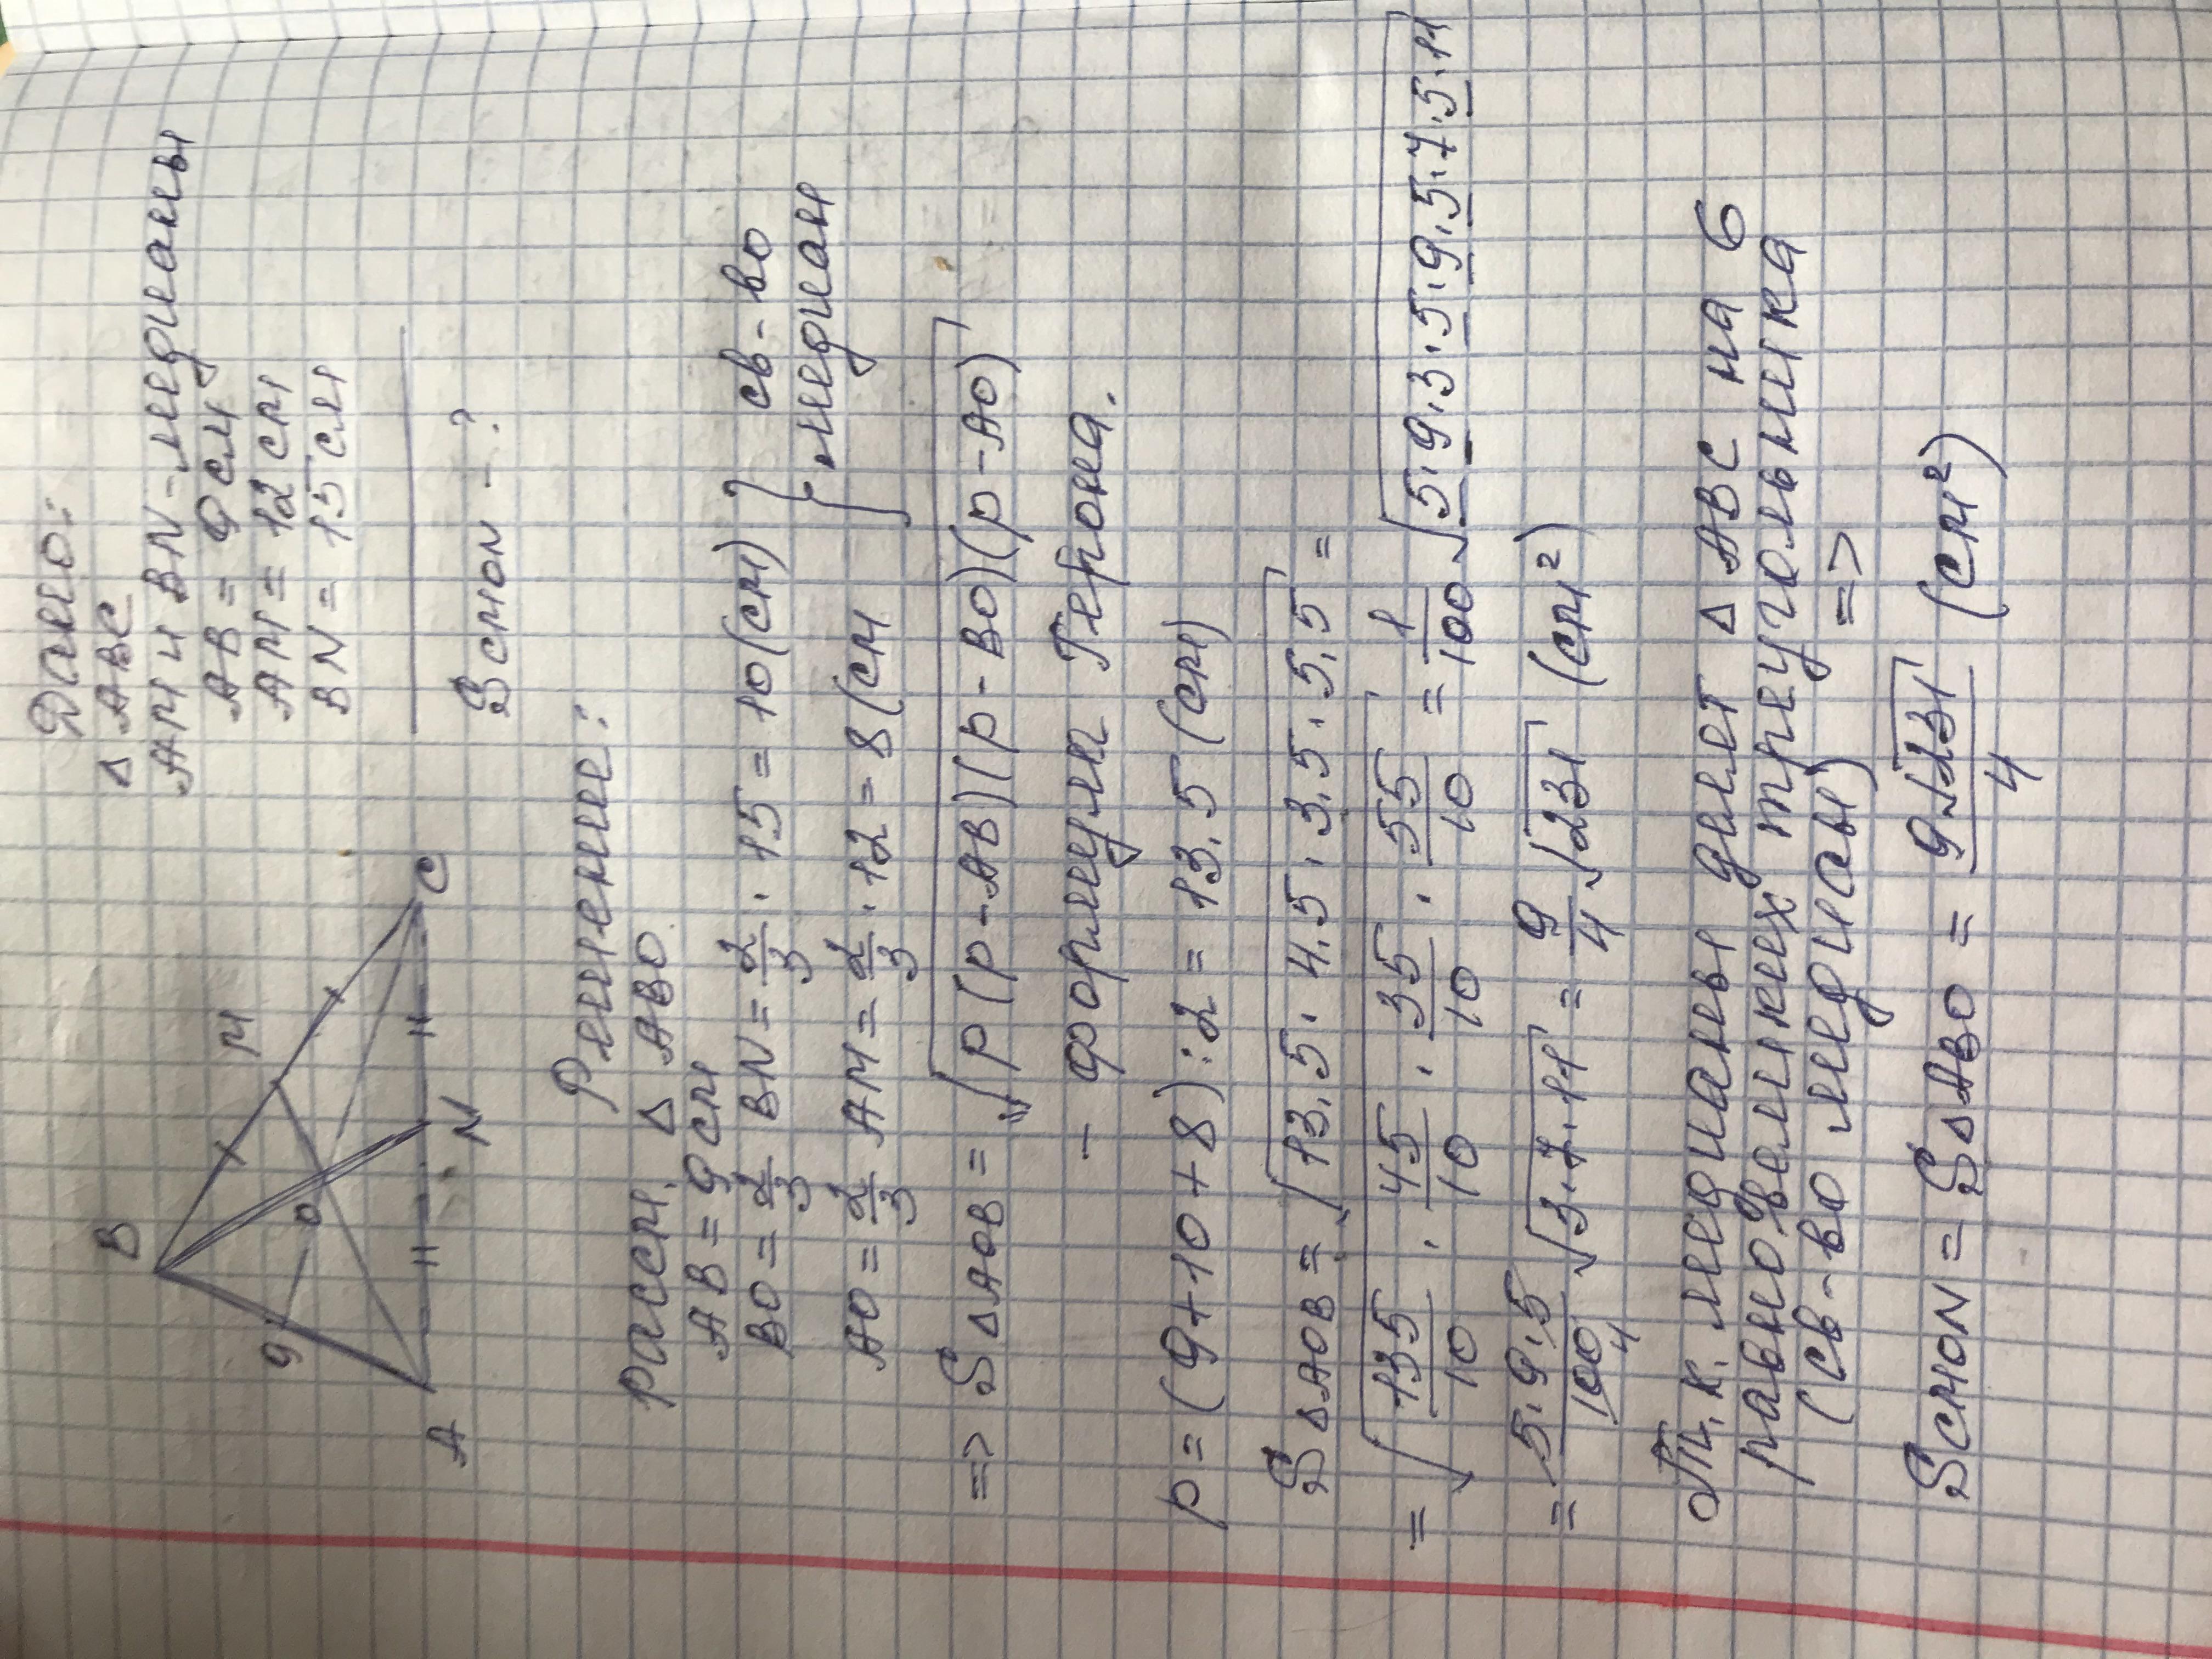 Дано:
Δ ABC
AM и BN - медианы
AB = 9 см
AM = 12 см
BN = 15 см
S CMON - ?
B
M
9
O
A
N
C
Решение:
рассм. Δ ABO
AB = 9 см
BO = 2/3 BN = 2/3 · 15 = 10 (см) } св-во
AO = 2/3 AM = 2/3 · 12 = 8 (см } медиан
=> S ΔAOB = √p(p-AB)(p-BO)(p-AO)
- формула Герона.
p = (9+10+8):2 = 13,5 (см)
S ΔAOB = √13,5 · 4,5 · 3,5 · 5,5 =
= √135/10 · 45/10 · 35/10 · 55/10 = 1/100 √5·9·3·5·9·5·7·5·11
= 5·9·5/100 √3·7·11 = 9/4 √231 (см²)
4
Т.к. медианы делет Δ ABC на 6
равновеликих треугольника
(св-во медианы) =>
S CMON = S ΔABO = 9√231/4 (см²)